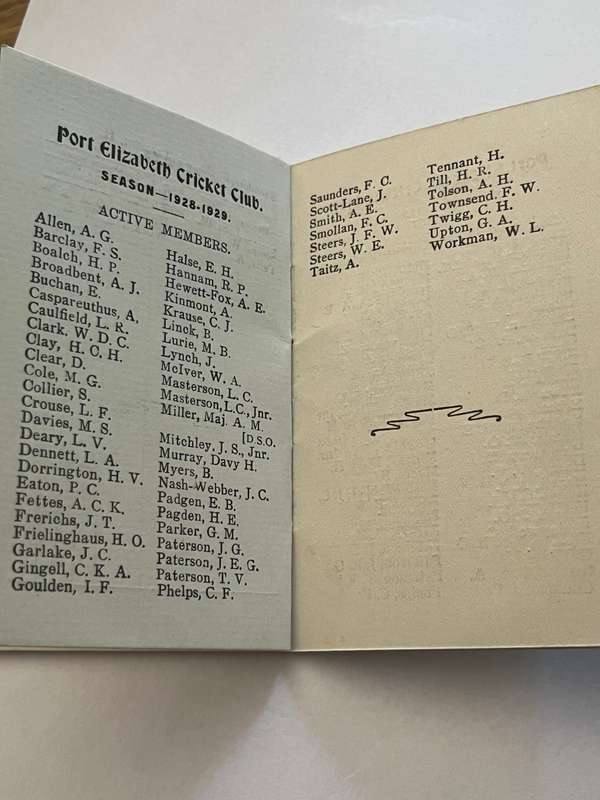 Port Elizabeth Cricket Club.
SEASON—1928-1929.
ACTIVE MEMBERS.
Allen, A. G.
Barclay, F. S.
Boalch, H. P.
Broadbent, A. J.
Buchan, E.
Caspareuthus, A.
Caulfield, L. R.
Clark. W. D. C.
Clay, H. C. H.
Clear, D.
Cole, M. G.
Collier, S.
Crouse, L. F.
Davies, M. S.
Deary, L. V.
Dennett, L. A.
Dorrington, H. V.
Eaton, P. C.
Fettes, A. C. K.
Frerichs, J. T.
Frielinghaus, H. O.
Garlake, J. C.
Gingell, C. K. A.
Goulden, I. F.
Halse, E. H.
Hannam, R. P.
Hewett-Fox, A. E.
Kinmont, A.
Krause, C. J.
Linck, B.
Lurie, M. B.
Lynch, J.
McIver, W. A.
Masterson, L. C.
Masterson, L.C., Jnr.
Miller, Maj. A. M.
[D.S.O.
Mitchley, J. S., Jnr.
Murray, Davy H.
Myers, B.
Nash-Webber, J. C.
Padgen, E. B.
Pagden, H. E.
Parker, G. M.
Paterson, J. G.
Paterson, J. E. G.
Paterson, T. V.
Phelps, C. F.
Saunders, F. C.
Scott-Lane, J.
Smith, A. E.
Smollan, F. C.
Steers, J. F. W.
Steers, W. E.
Taitz, A.
Tennant, H.
Till, H. R.
Tolson, A. H.
Townsend. F. W.
Twigg, C. H.
Upton, G. A.
Workman, W. L.